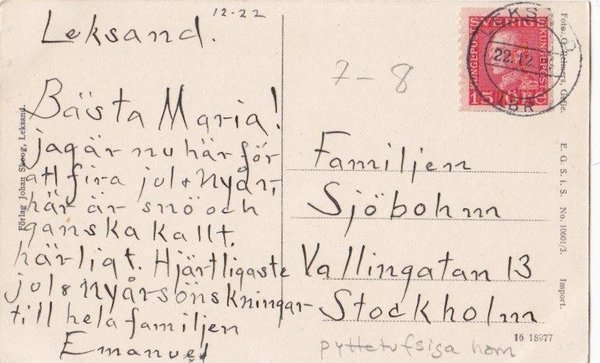 12-22
Leksand.
Bästa Maria!
jag är nu här för
att fira jul & Nyår,
här är snö och
ganska kallt,
härligt. Hjärtligaste
jul & nyårsönskningar
till hela familjen
Emanuel
7-8
SVERIGE
15 ÖRE
LEKSAND
22.12
LBR
Familjen
Sjöbohm
Vallingatan 13
Stockholm
16 18977
Förlag Johan Skoog, Leksand.
Foto. Gefle.
E. G. S. i. S. No. 10001/3.
Import.